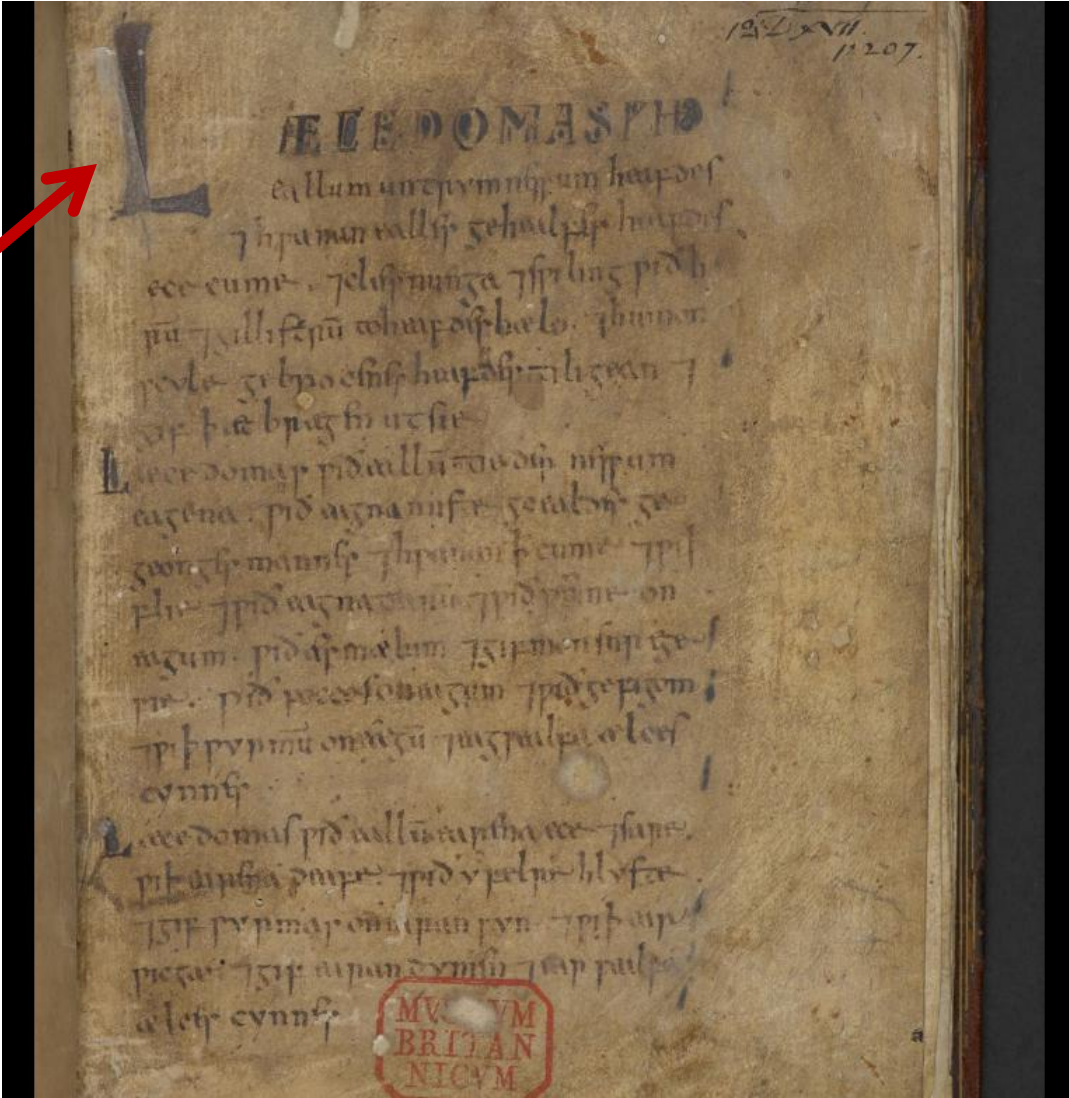 12 D XVII.
p. 207.
LÆCEDOMAS ǷIÐ
eallum untrymnessum heafdes
⁊ hƿanan ealles gehealfes heafdes
ece cume . ⁊ clæsnunga ⁊ spiling ƿið h
rū ⁊ gillistrū to heafdes hælo . ⁊ hu mon
scyle gebrocenes heafdes tiligean ⁊
gif þæt brægen ut sie
Læce domas ƿið eallū tiedernessum
eagena . ƿið eagna miste gealdes ge
geonges mannes ⁊ hƿanon þ cume ⁊ ƿiþ
flie ⁊ ƿið eagna tearū ⁊ ƿið ƿenne on
eagum . ƿið æsmælum ⁊ gif mon surege
sie . ƿið poccas on eagum ⁊ ƿið gefigom
⁊ ƿiþ ƿyrmū on eagū ⁊ eagsealfa ælces
cynnes
Læce domas ƿið eallū earena ece ⁊ sare .
ƿiþ earena deafe . ⁊ ƿið yfelre hlyste .
⁊ gif ƿyrmas on earan syn . ⁊ ƿiþ ear
ƿicgan ⁊ gif earan dynien ⁊ earsealfa
ælces cynnes
MVSEVM
BRITAN
NICVM